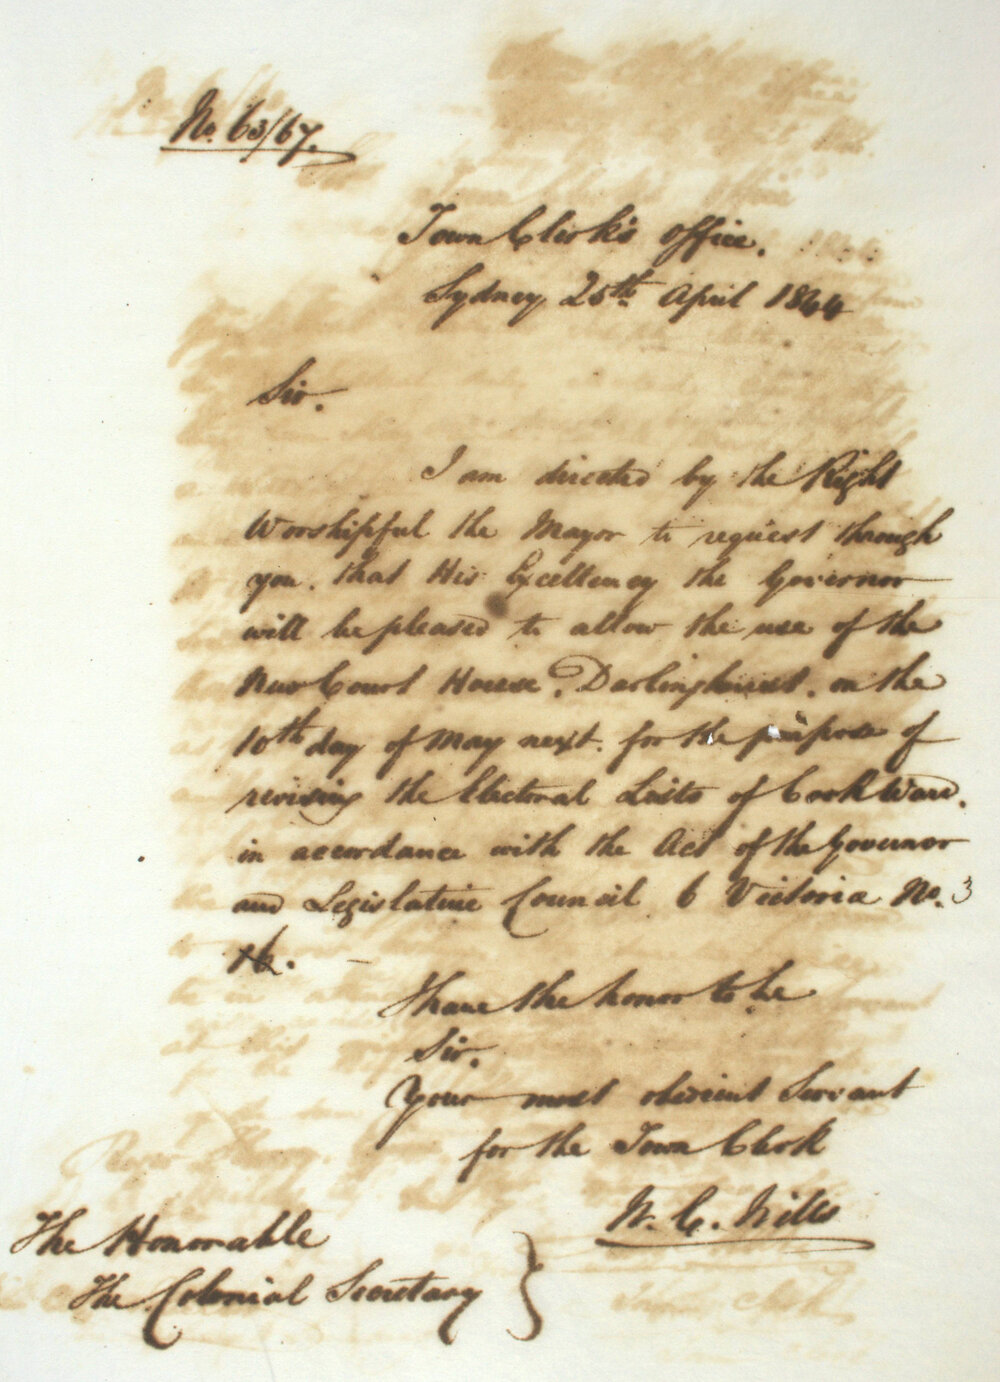 No. 63/67.
Town Clerk's Office.
Sydney, 25th April 1844
Sir.
I am directed by the Right
Worshipful the Mayor to request through
you, that His Excellency the Governor
will be pleased to allow the use of the
New Court House, Darlinghurst, on the
10th day of May next, for the purpose of
revising the Electoral Lists of Cook Ward,
in accordance with the Act of the Governor
and Legislative Council 6 Victoria No. 3
I have the honor to be
Sir.
Your most obedient Servant
for the Town Clerk
The Honorable
The Colonial Secretary